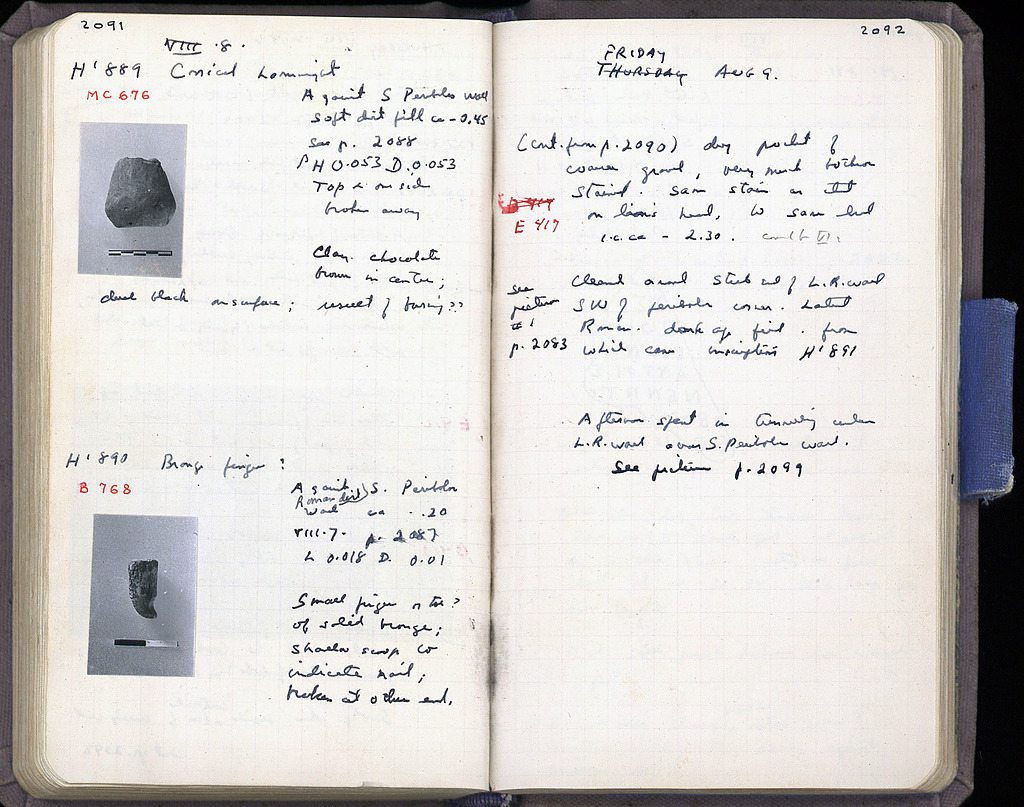 2091
VIII.8.
H'889 Conical Loomweight
MC 676
Against S Peribolos wall
soft dirt fill ca -0.45
see p. 2088
PH 0.053 D. 0.053
Top & on side
broken away
Clay. chocolate
brown in center;
dull black on surface; result of firing??
H'890 Bronze finger?
B 768
Against S. Peribolos
Roman dirt
wall ca -.20
VIII.7. p. 2087
L 0.018 D. 0.01
Small finger or toe?
of solid bronze;
shallow scoop to
indicate nail;
broken at other end.
2092
FRIDAY
THURSDAY AUG 9.
(cont. from p. 2090) dry pocket of
coarse gravel, very much
stained. same stain as that
on lion's head, to same level
i.e. ca - 2.30.
E 417
see
picture
#1
p. 2083
Cleaned around stub end of L.R. wall
SW of peribolos corner. Latest
Roman. dark age fill. from
which came inscription H'891
Afternoon spent in tunneling under
L.R. wall over S. Peribolos wall.
See picture p. 2099